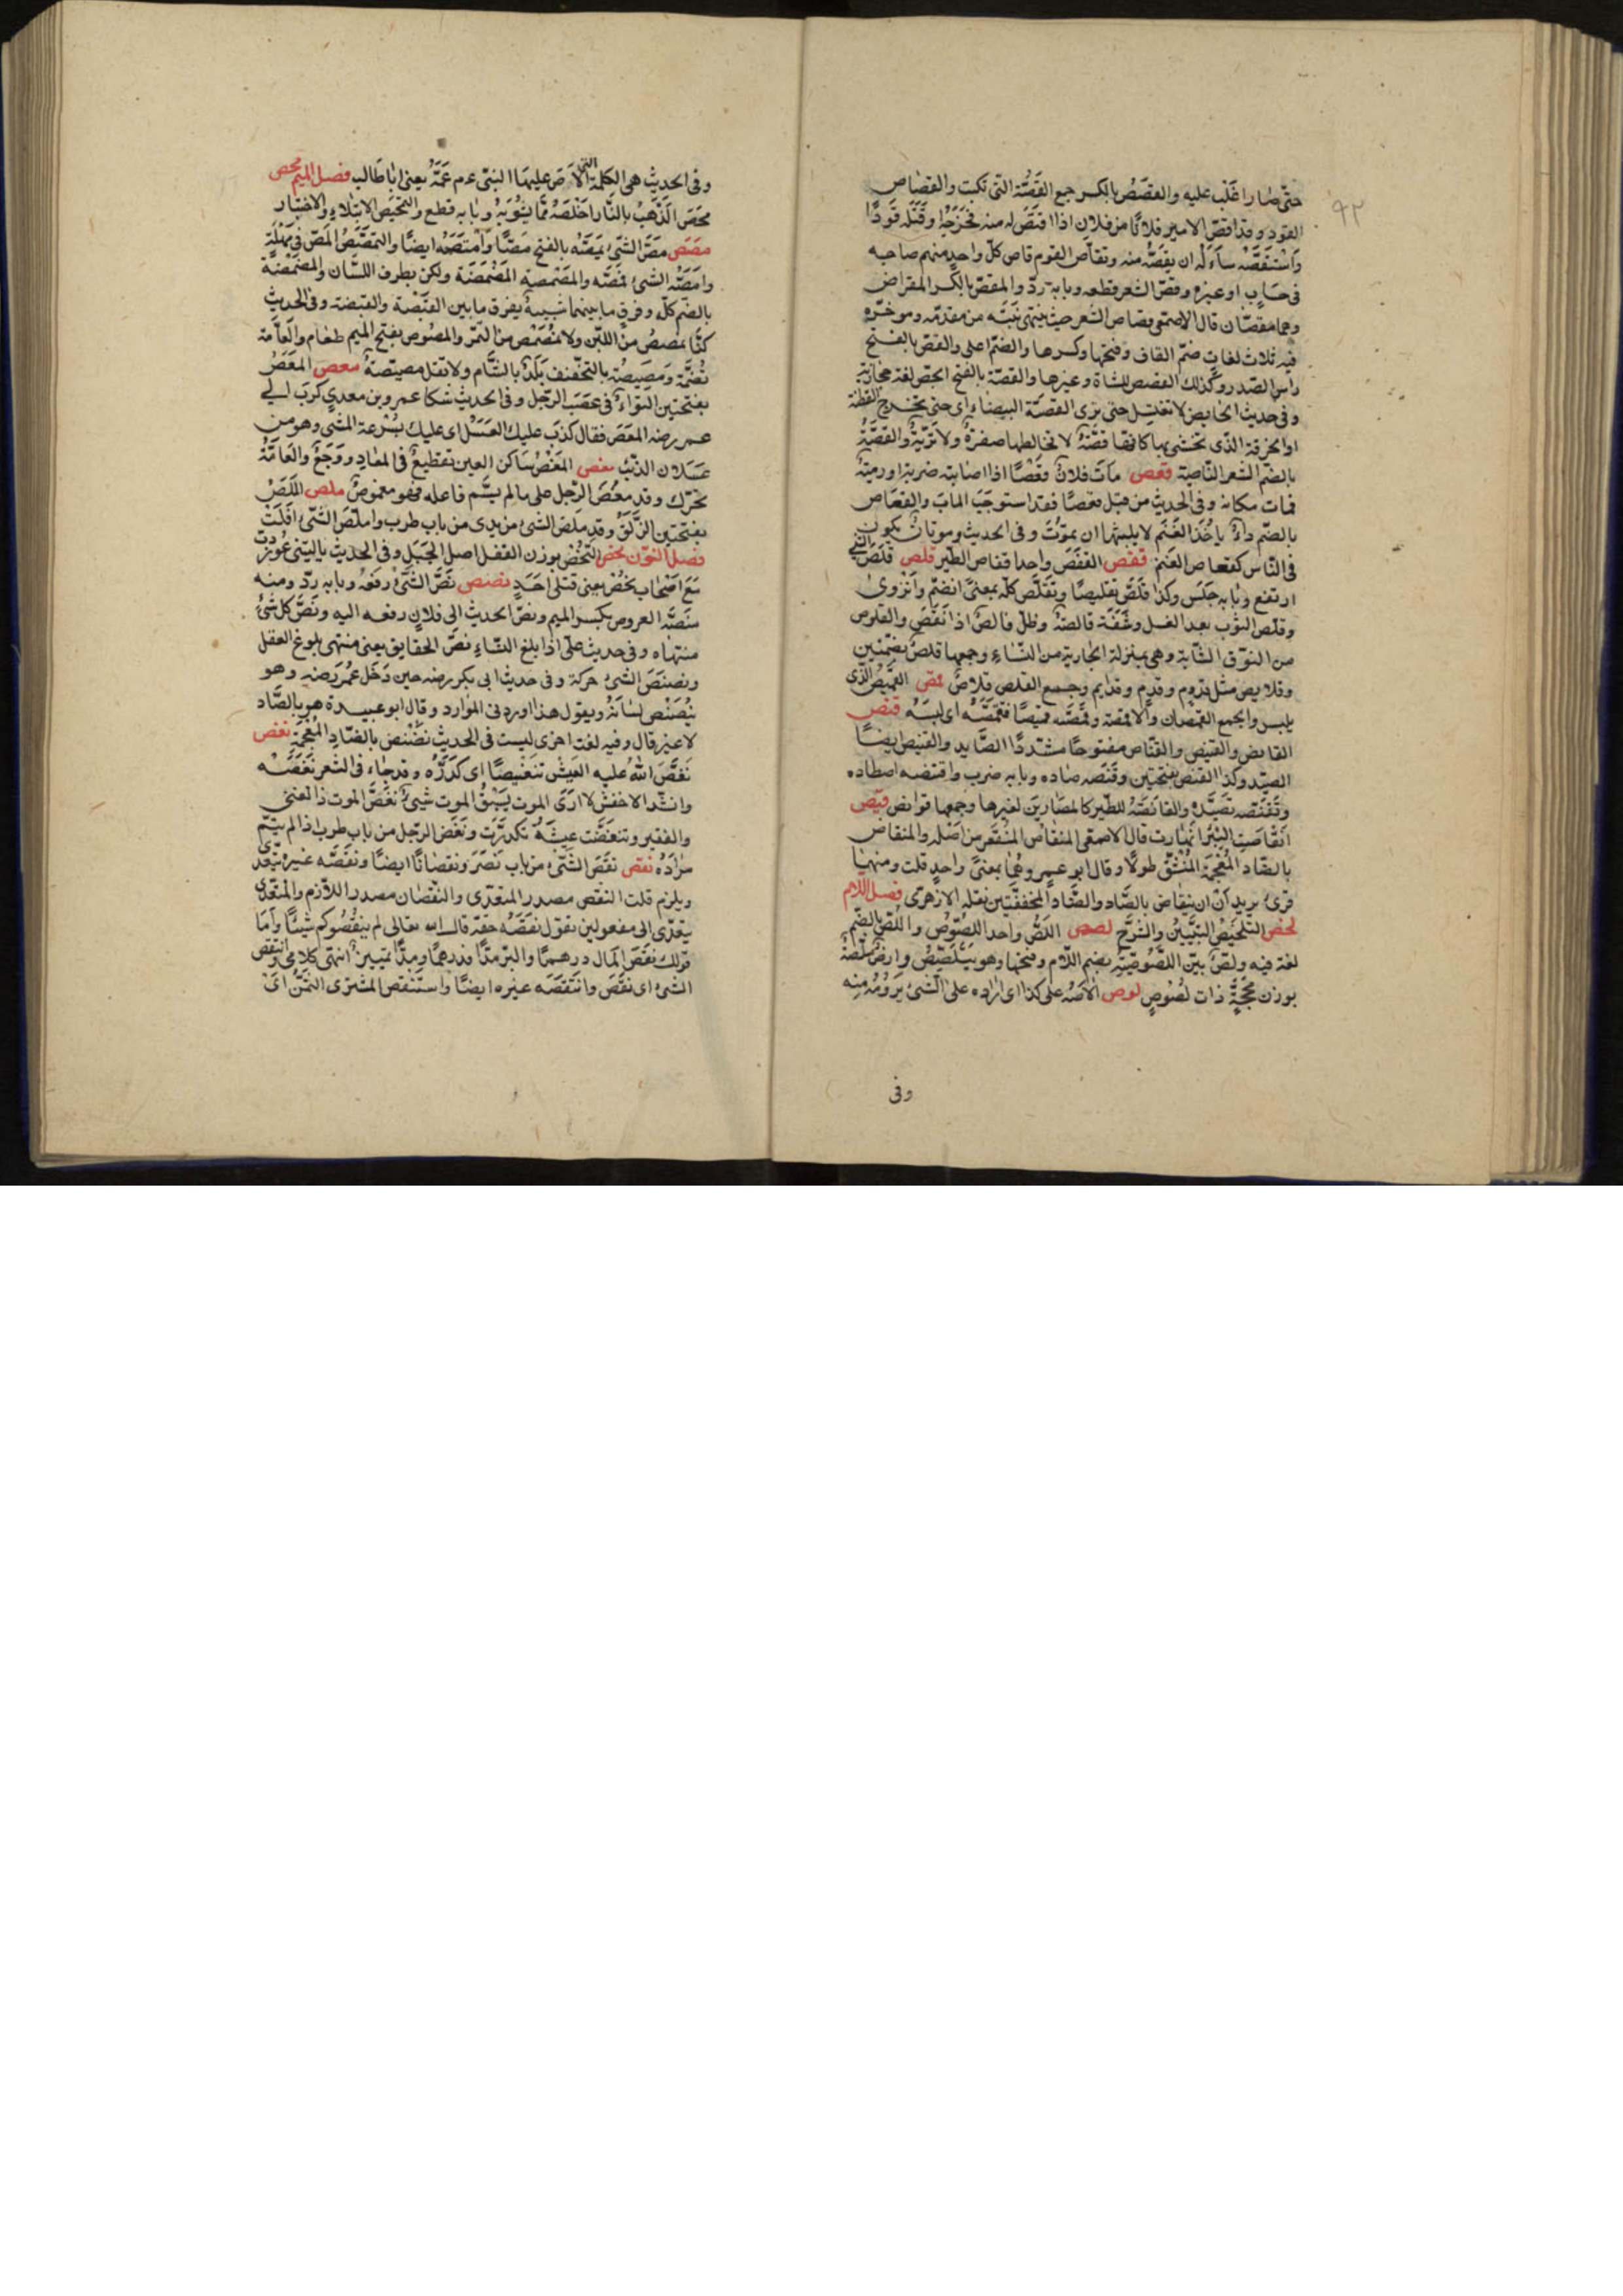 ٩٢
حتّى صارا غلب عليه والقصص بالكسر جمع القصّة التى تكتب والقصاص
القود وقد اقصّ الامير فلانا من فلان اذا اقتصّ له منه فجرحه او قتله قودًا
واستقصّه سأله ان يقصّه منه وتقاصّ القوم قاصّ كلّ واحد منهم صاحبه
فى حساب او غيره وقصّ الشعر قطعه وبابه ردّ والمقصّ بالكسر المقراض
وهما مقصّان قال الاصمعى قصاص الشعر حيث ينتهى نبته من مقدّمه وموخّره
فيه ثلاث لغات ضمّ القاف وفتحها وكسرها والضمّ اعلى والقصّ بالفتح
راس الصّدر وكذلك القصص للشاة وغيرها والقصّة بالفتح الجصّ لغة حجازية
وفى حديث الحايض لا تغتسل حتى ترى القصّة البيضاء اى حتى تخرج القطنة
او الخرقة الذى تحتشى بها كانها قصّة لا تخالطها صفرة ولا تريّة والقصّة
بالضمّ الشعر النّاصية قعص مات فلان قعصًا اذا اصابته ضربة او رمية
فمات مكانه وفى الحديث من قتل قعصا فقد استوجب المآب والقعاص
بالضمّ داء ياخذ الغنم لا يلبثها ان تموت وفى الحديث وموتان يكون
فى النّاس كقعاص الغنم قفص القفص واحد اقفاص الطير قلص قلص الشئ
ارتفع وبابه جلس وكذا قلّص تقليصًا وتقلّص كلّه بمعنى انضمّ وانزوى
وقلص الثوب بعد الغسل وشفة قالصة وظلّ قالص اذا نقص والقلوص
من النوق الشّابة وهى بمنزلة الجارية من النّساء وجمعها قلص بضمّتين
وقلايص مثل قدوم وقدم وقدايم وجمع القلص قلاص قمص القميص الّذى
يلبس والجمع القمصان والاقمصة وقمّصه قميصًا فتقمّصه اى لبسه قنص
القانص والقنيص والقنّاص مفتوحًا مشدّدًا الصّايد والقنيص ايضًا
الصيد وكذا القنص بفتحتين وقنصه صاده وبابه ضرب واقتنصه اصطاده
وتقنّصه تصيّده والقانصة للطّير كالمصارين لغيرها وجمعها قوانص قيص
انقاصت البئر انهارت قال الاصمعى المنقاص المنقعر من اصله والمنقاض
بالضّاد المعجمة المنشقّ طولًا وقال ابو عمرو هما بمعنى واحد قلت ومنهما
قرئ يريد ان ينقاض بالصّاد والضّاد المخففتين نقله الازهرى فصل اللام
لخص التلخيص التبيين والشرح لصص اللصّ واحد اللصوص واللصّ بالضّم
لغة فيه ولصّ بيّن اللصوصيّة بضم اللّام وفتحها وهو يتلصّص وارض ملصّة
بوزن محجّة ذات لصوص لوص الاصه على كذا اى اراده على الشئ يرومه منه
وفى
وفى الحديث هى الكلمة التى الاص عليها النبى عم عمّه يعنى ابا طالب فصل الميم محص
محص الذهب بالنّار اخلصه ممّا يشوبه وبابه قطع والتمحيص الابتلاء والاختبار
مصص مصّ الشئ يمصّه بالفتح مصّا وامتصّه ايضًا والتمصّص المصّ فى مهلة
وامصّه الشئ فمصّه والمصمصة المضمضة ولكن بطرف اللسان والمضمضة
بالضم كلّه وفرق ما بينهما شبيه بفرق ما بين القبصة والقبضة وفى الحديث
كنّا نمصمص من اللبن ولا نمصمص من التمر والمصوص بفتح الميم طعام والعامّة
تضمّه ومصيصة بالتخفيف بلد بالشّام ولا تقل مصيّصة معص المعص
بفتحتين التواء فى عصب الرّجل وفى الحديث شكا عمرو بن معدى كرب الى
عمر رضه المعص فقال كذب عليك العسل اى عليك بسرعة المشى وهو من
عسلان الذئب مغص المغص ساكن الغين تقطيع فى المعاد ووجع والعامّة
تحرّك وقد مغص الرّجل على ما لم يسّم فاعله فهو ممغوص ملص الملص
بفتحتين الزّلق وقد ملص الشئ من يدى من باب طرب واملص الشئ افلت
فصل النون نحص النّحص بوزن القفل اصل الجبل وفى الحديث ياليتنى غودرت
مع اصحاب نحص يعنى قتلى احد نصص نصّ الشئ رفعه وبابه ردّ ومنه
منصّة العروس بكسر الميم ونصّ الحديث الى فلان رفعه اليه ونصّ كل شئ
منتهاه وفى حديث على اذا بلغ النساء نصّ الحقايق يعنى منتهى بلوغ العقل
ونصنص الشئ حركه وفى حديث ابى بكر رضه حين دخل عمر رضه وهو
ينصنص لسانه ويقول هذا اوردنى الموارد وقال ابو عبيدة هو بالصّاد
لا غير قال وفيه لغة اخرى ليست فى الحديث نضنض بالضّاد المعجمة نغص
نغّص الله عليه العيش تنغيصًا اى كدّره وقد جاء فى الشعر نغصه
وانشد الاخفش لا ارى الموت يسبق الموت شئ نغّص الموت ذا الغنى
والفقير وتنغّصت عيشه تكدّرت ونغص الرّجل من باب طرب اذا لم يتمّ
مراده نقص نقص الشئ من باب نصر ونقصانًا ايضًا ونقصه غيره يتعدى
ويلزم قلت النقص مصدر المتعدّى والنقصان مصدر اللّازم والمتعدّى
يتعدّى الى مفعولين تقول نقصه حقّه قال الله تعالى لم ينقصوكم شيئًا وامّا
قولك نقص المال درهمًا والبر مدًّا فدرهمًا ومدًّا تمييز انتهى كلامى وانتقص
الشئ اى نقص وانتقصه غيره ايضًا واستنقص المشترى الثمن اى